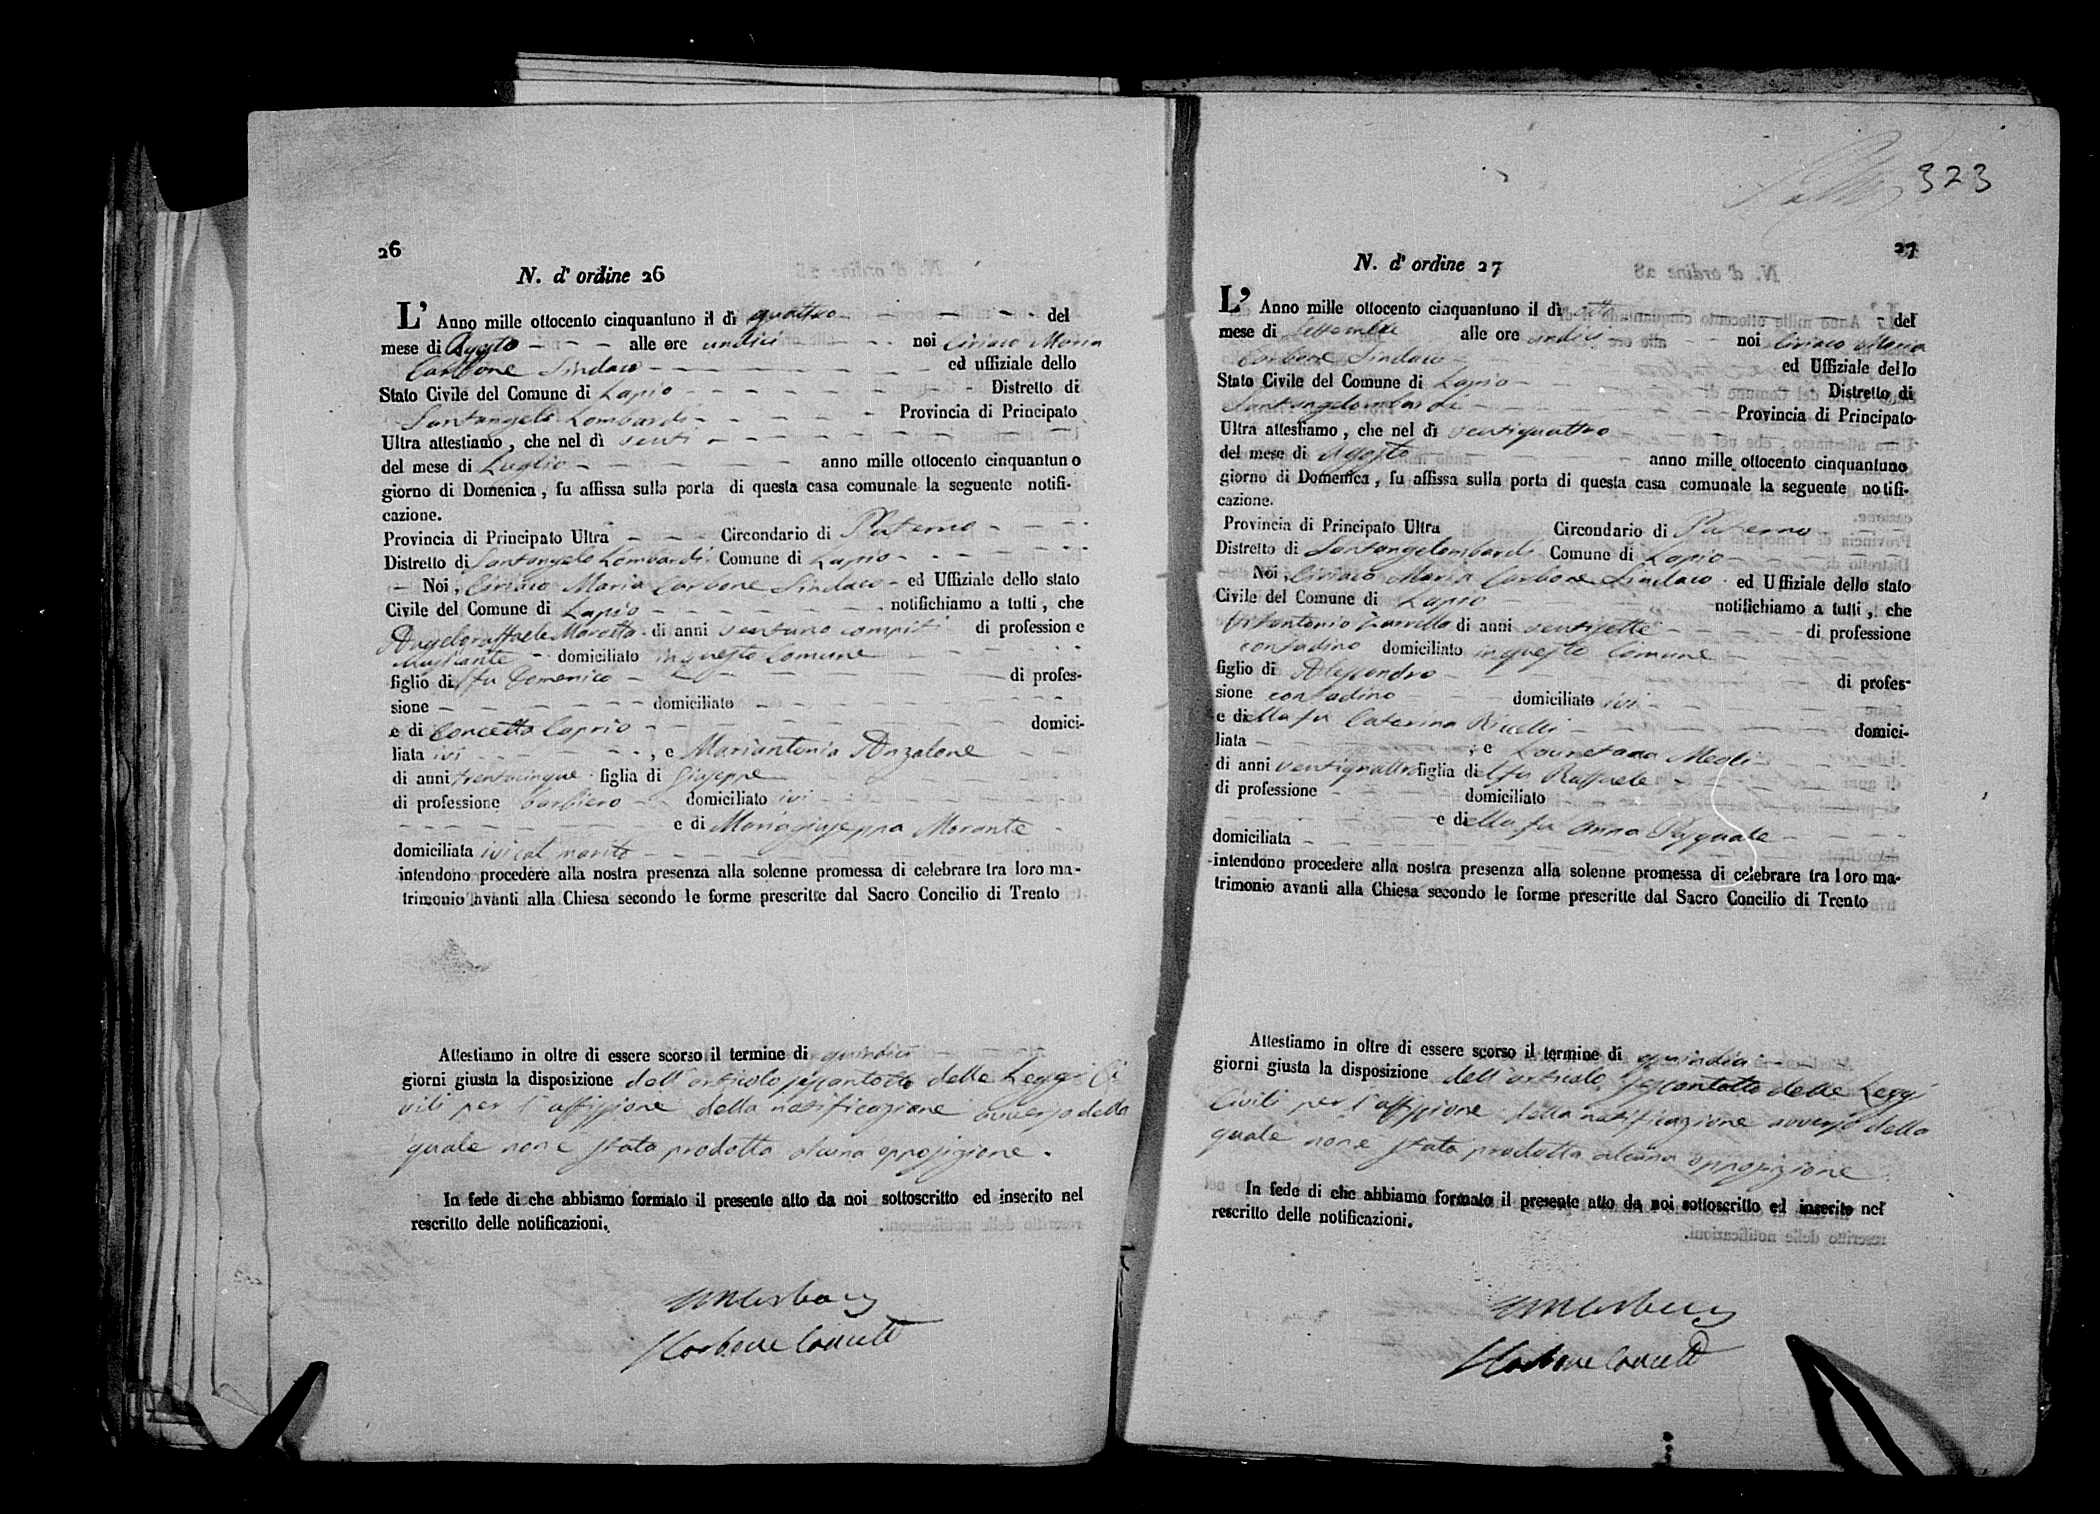 26
N. d' ordine 26
L' Anno mille ottocento cinquantuno il dì quattro del
mese di Agosto alle ore undici noi Ciriaco Maria
Carbone Sindaco ed uffiziale dello
Stato Civile del Comune di Lapio Distretto di
Santangelo Lombardi Provincia di Principato
Ultra attestiamo, che nel dì venti
del mese di Luglio anno mille ottocento cinquantuno
giorno di Domenica, fu affissa sulla porta di questa casa comunale la seguente notifi-
cazione.
Provincia di Principato Ultra Circondario di Paterno
Distretto di Santangelo Lombardi Comune di Lapio
Noi, Ciriaco Maria Carbone Sindaco ed Uffiziale dello stato
Civile del Comune di Lapio notifichiamo a tutti, che
Angeloraffaele di anni ventuno compiti di professione
domiciliato in questo Comune
figlio di fu Domenico di profes-
sione domiciliato
e di Concetta Caprio domici-
liata ivi , e Mariantonia Anzalone
di anni trentacinque figlia di Giuseppe
di professione barbiero domiciliato ivi
e di Mariagiuseppa Morante
domiciliata ivi col marito
intendono procedere alla nostra presenza alla solenne promessa di celebrare tra loro ma-
trimonio avanti alla Chiesa secondo le forme prescritte dal Sacro Concilio di Trento
Attestiamo in oltre di essere scorso il termine di quindici
giorni giusta la disposizione dell'articolo sessantotto delle Leggi Ci
vili per l'affissione della notificazione avverso della
quale non è stata prodotta alcuna opposizione.
In fede di che abbiamo formato il presente atto da noi sottoscritto ed inserito nel
rescritto delle notificazioni.
323
27
N. d' ordine 27
L' Anno mille ottocento cinquantuno il dì del
mese di Settembre alle ore undici noi Ciriaco Maria
Carbone Sindaco ed Uffiziale dello
Stato Civile del Comune di Lapio Distretto di
Santangelombardi Provincia di Principato
Ultra attestiamo, che nel dì ventiquattro
del mese di Agosto anno mille ottocento cinquantuno
giorno di Domenica, fu affissa sulla porta di questa casa comunale la seguente notifi-
cazione.
Provincia di Principato Ultra Circondario di Paterno
Distretto di Santangelombardi Comune di Lapio
Noi, Ciriaco Maria Carbone Sindaco ed Uffiziale dello stato
Civile del Comune di Lapio notifichiamo a tutti, che
Vitantonio di anni ventisette di professione
contadino domiciliato in questo Comune
figlio di Alessandro di profes-
sione contadino domiciliato ivi
e della fu Caterina domici-
liata , e Lauretana Meoli
di anni ventiquattro figlia del fu Raffaele
di professione domiciliato
e della fu Anna Pasquale
domiciliata
intendono procedere alla nostra presenza alla solenne promessa di celebrare tra loro ma-
trimonio avanti alla Chiesa secondo le forme prescritte dal Sacro Concilio di Trento
Attestiamo in oltre di essere scorso il termine di quindici
giorni giusta la disposizione dell'articolo sessantotto delle Leggi
Civili per l'affissione della notificazione avverso della
quale non è stata prodotta alcuna opposizione
In fede di che abbiamo formato il presente atto da noi sottoscritto ed inserito nel
rescritto delle notificazioni.